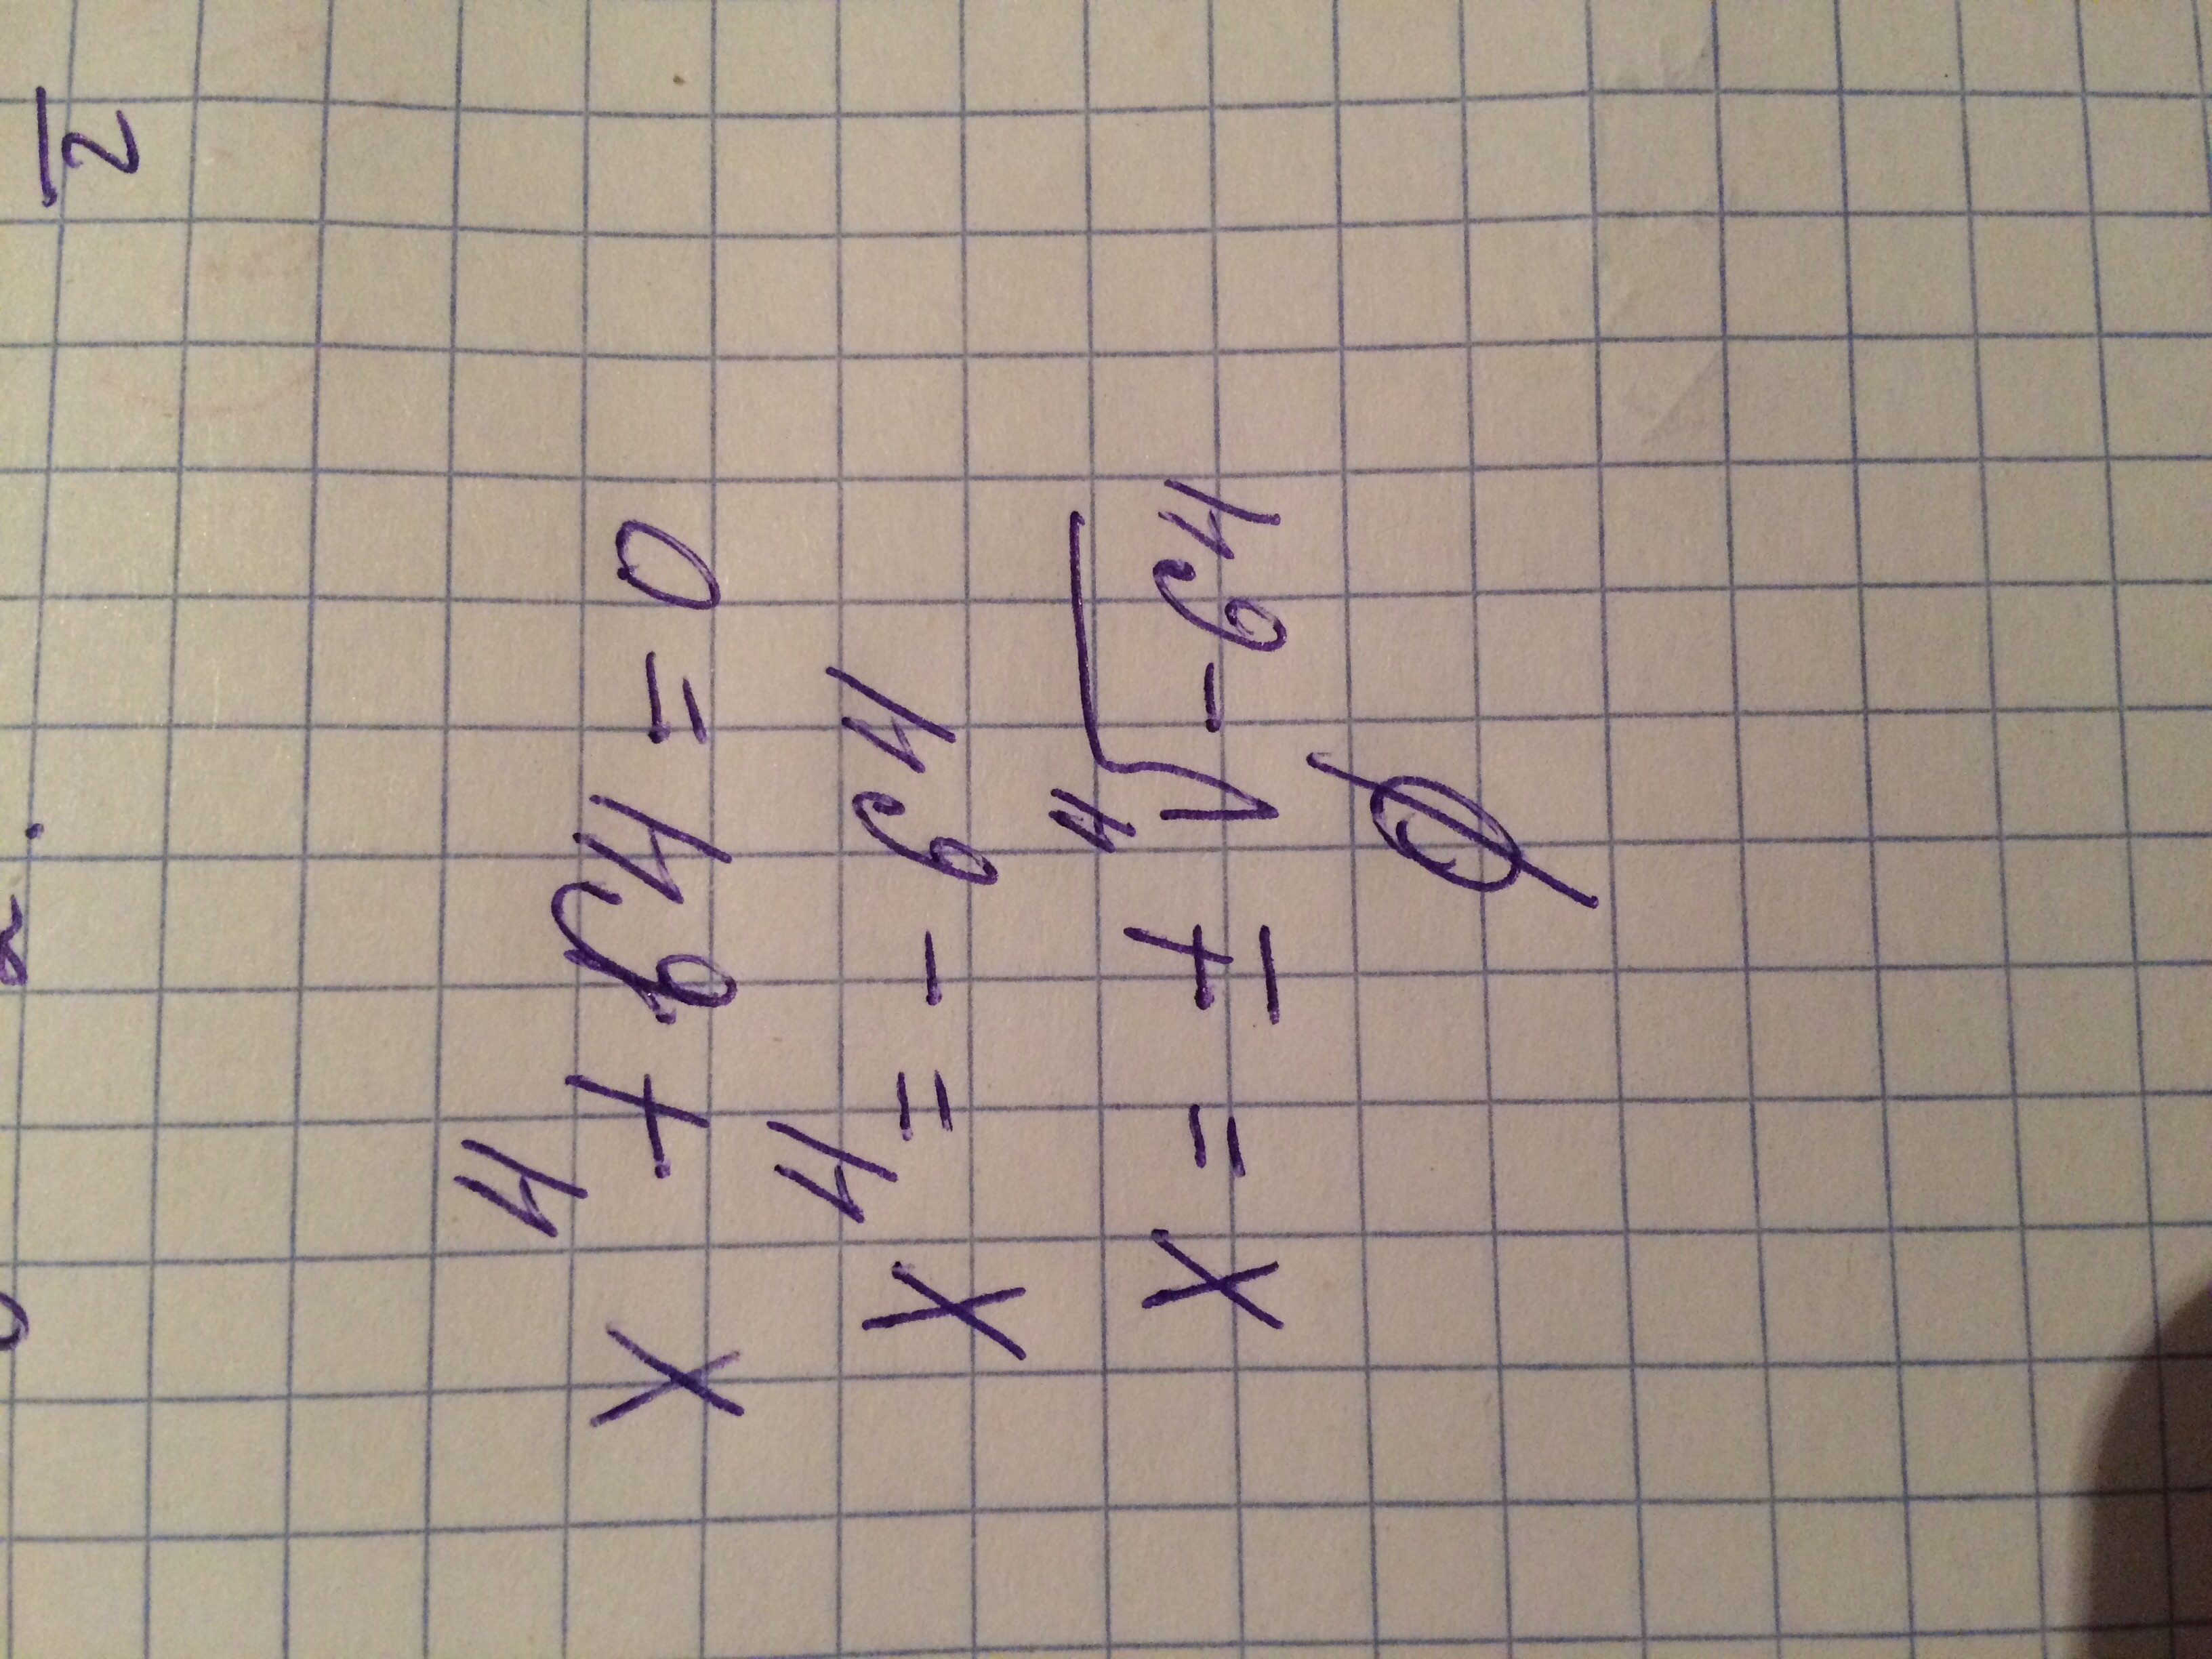 2
x⁴ + 64 = 0
x⁴ = - 64
x = ± ⁴√-64
∅